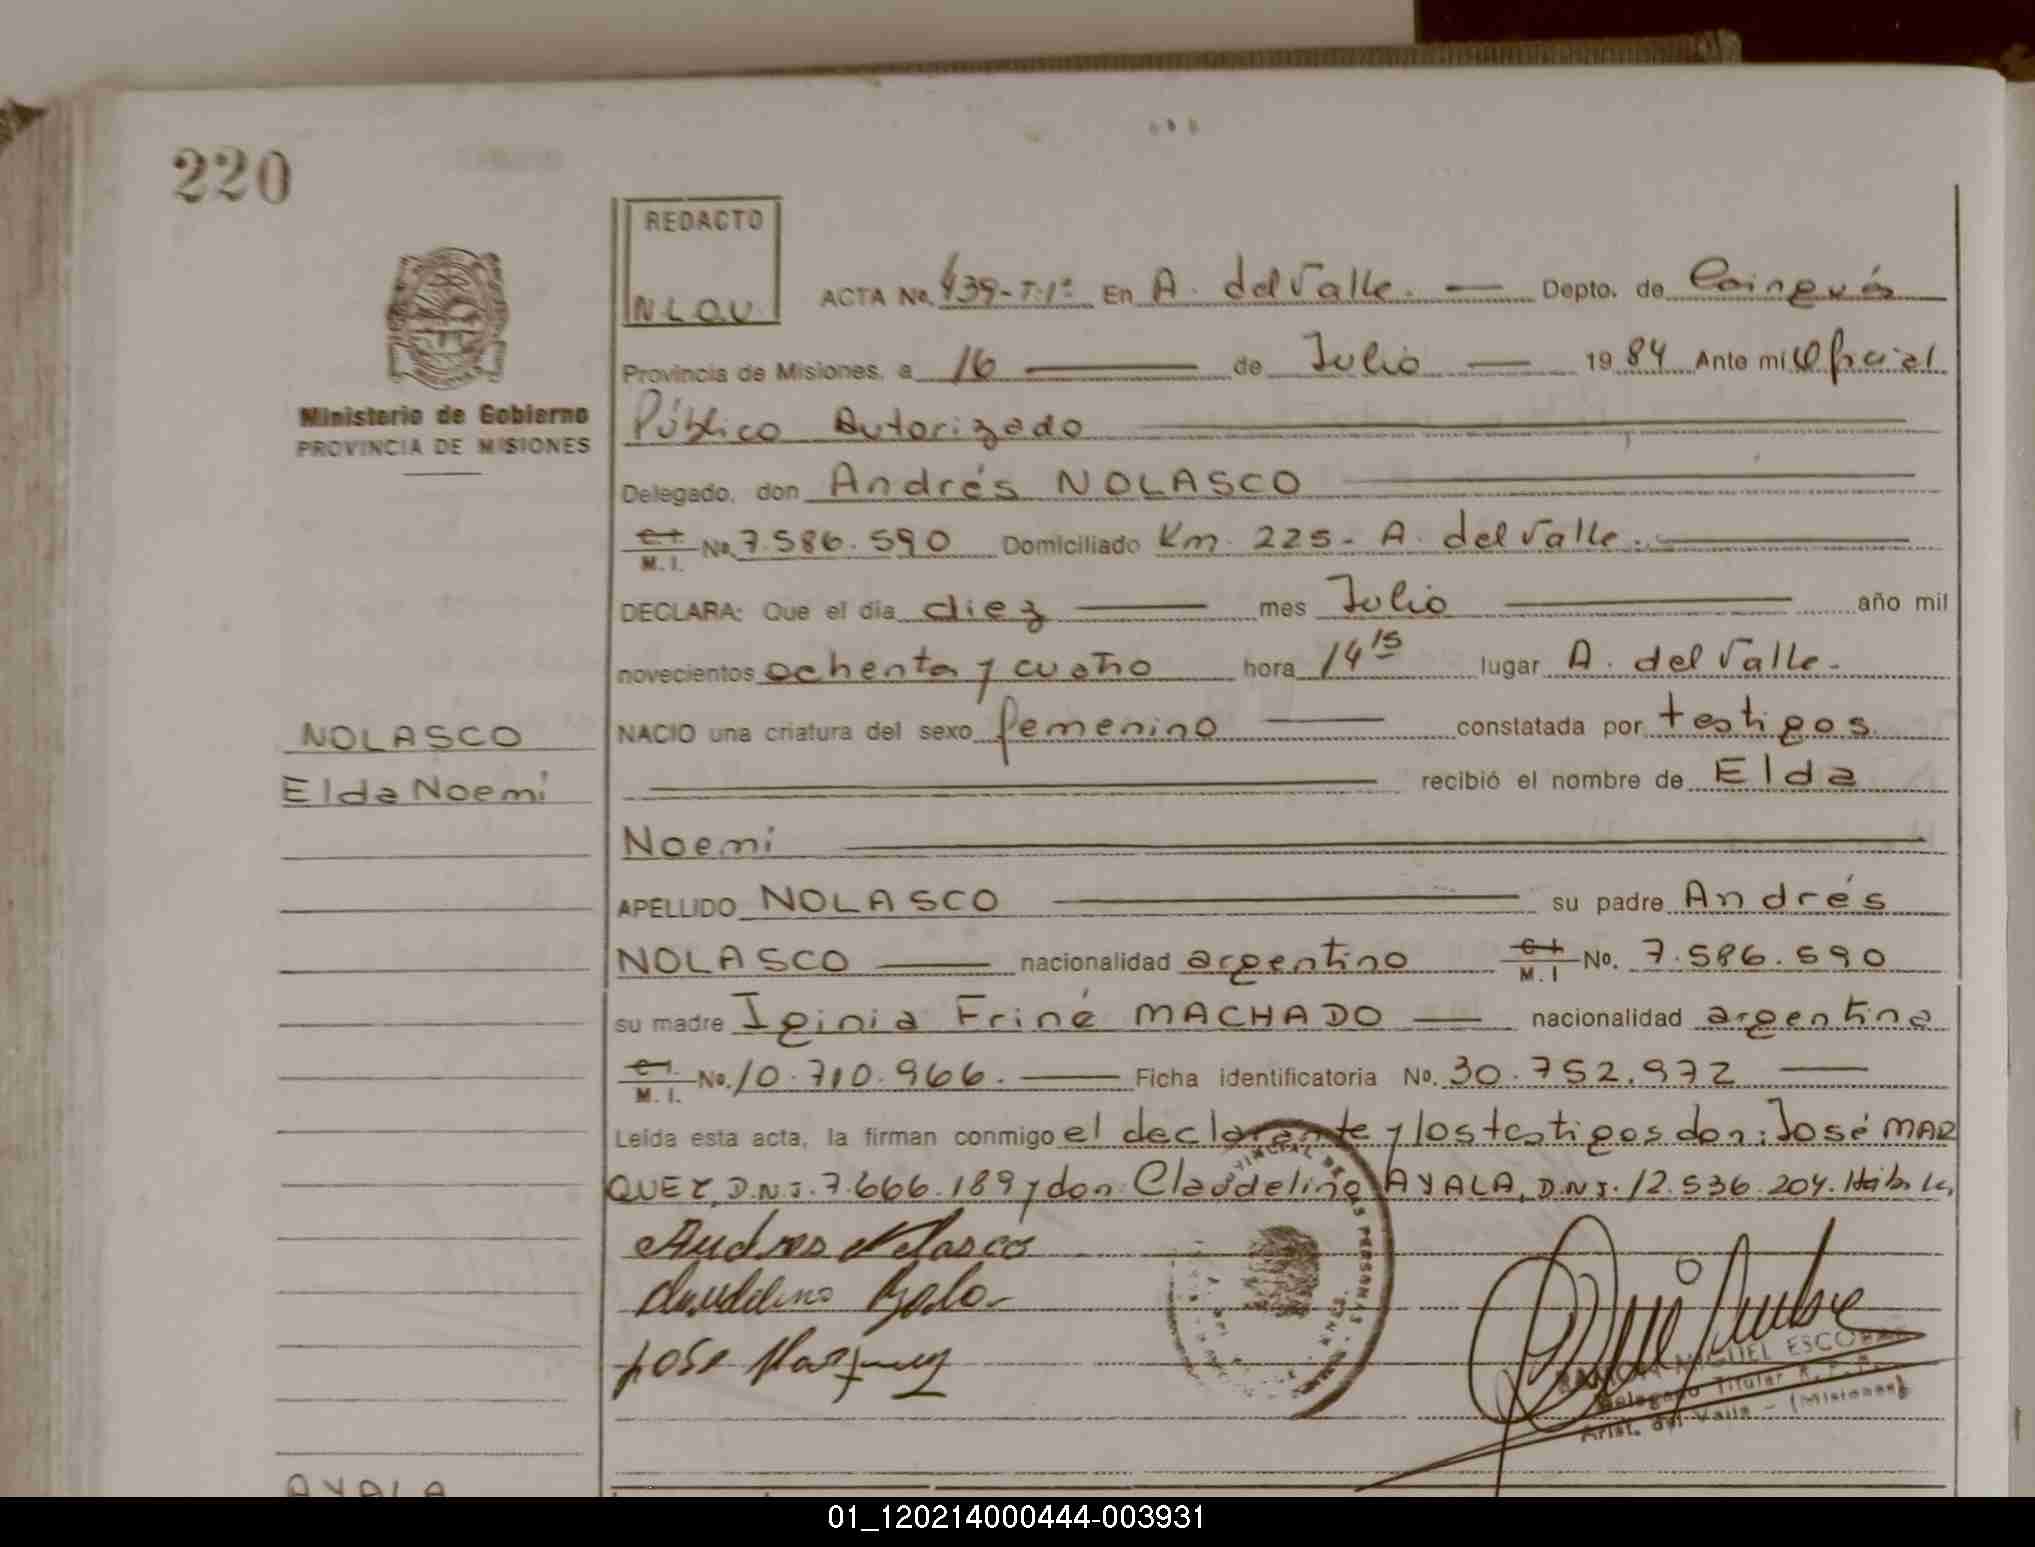 220
REDACTO
N.L.O.V.
ACTA No. 439-T.1º En A. del Valle. — Depto. de Cainguás
Provincia de Misiones, a 16 — de Julio — 19 84 Ante mí Oficial
Ministerio de Gobierno
PROVINCIA DE MISIONES
Público Autorizado
Delegado, don Andrés NOLASCO
C.I. M.I. No. 7.586.590 Domiciliado Km. 225- A. del Valle.
DECLARA: Que el día diez — mes Julio — año mil
novecientos ochenta y cuatro hora 14 15 lugar A. del Valle.
NOLASCO
Elda Noemí
NACIO una criatura del sexo femenino — constatada por testigos
recibió el nombre de Elda
Noemí
APELLIDO NOLASCO — su padre Andrés
NOLASCO — nacionalidad argentino C.I. M.I No. 7.586.590
su madre Iginia Friné MACHADO — nacionalidad argentina
C.I. M.I. No. 10.710.966. — Ficha identificatoria No. 30.752.972 —
Leída esta acta, la firman conmigo el declarante y los testigos don: José MAR
QUEZ, D.N.I. 7.666.189 y don Claudelino AYALA, D.N.I. 12.536.204.
Andres Nolasco
Jose Marquez
PROVINCIAL DE LAS PERSONAS
RAMON MIGUEL ESCOBAR
Delegado Titular R.P.P.
Arist. del Valle - (Misiones)
AYALA
01_120214000444-003931